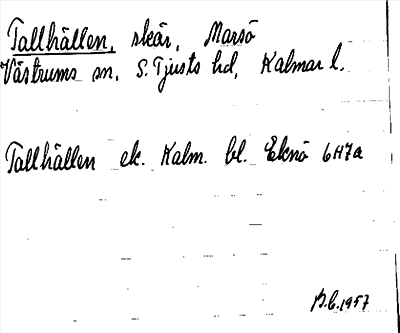 Tallhällen, skär, Marsö
Västrums sn, S. Tjusts hd, Kalmar l.
Tallhällen ek. Kalm. bl. Eknö 6H7a
B.C. 1957